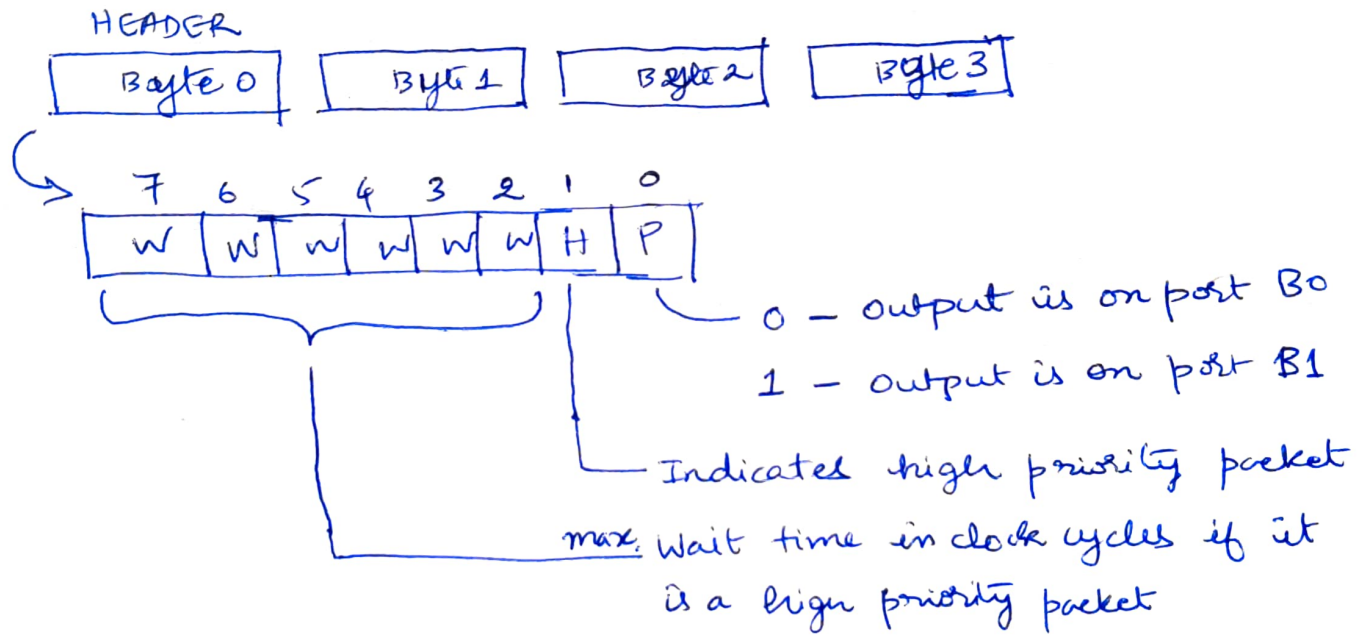 HEADER
Byte 0 Byte 1 Byte 2 Byte 3
7 6 5 4 3 2 1 0
W W W W W W H P
0 – output is on port B0
1 – output is on port B1
Indicates high priority packet
max. Wait time in clock cycles if it
is a high priority packet